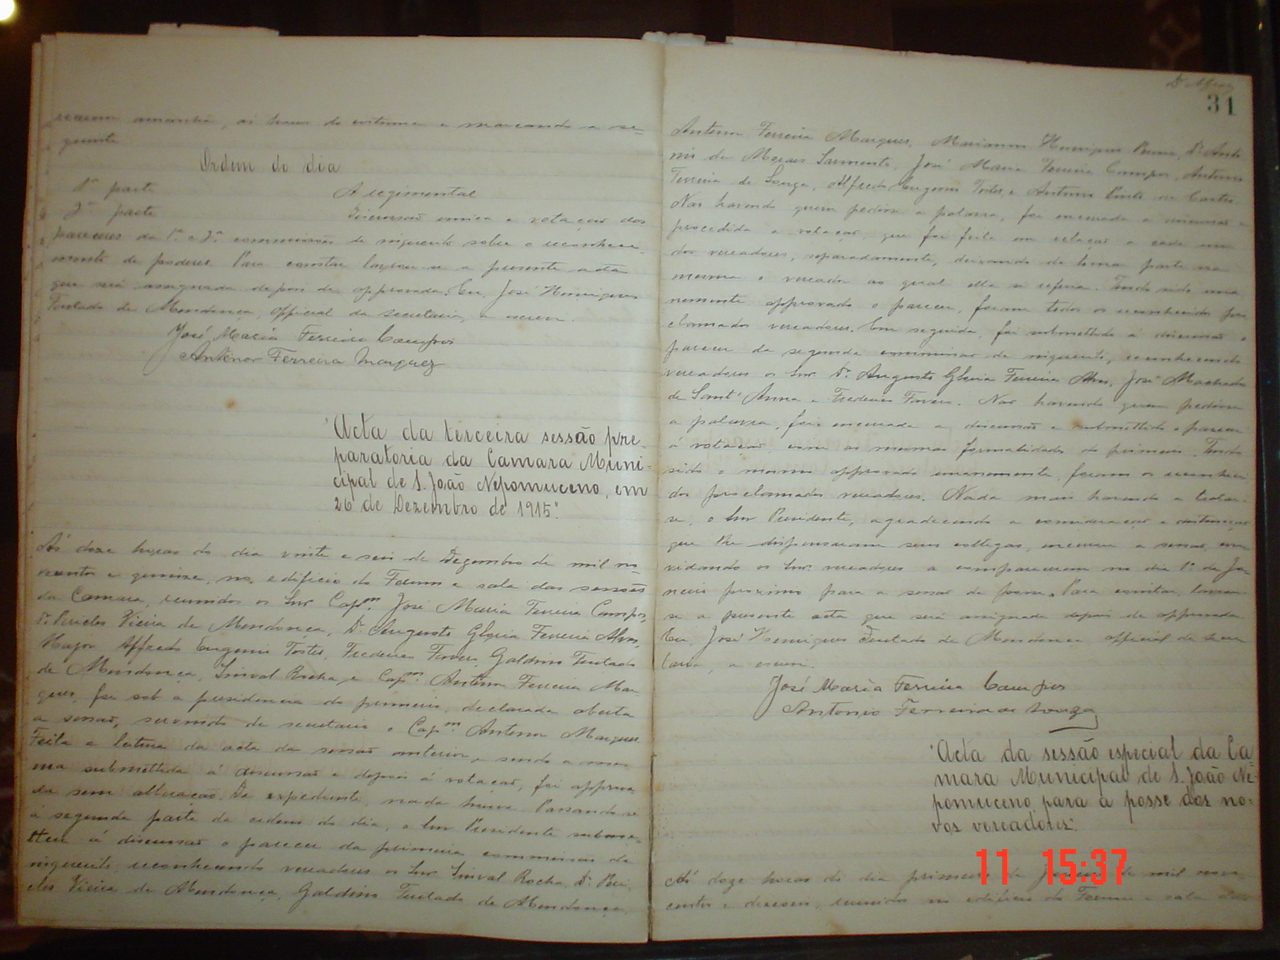 reunirem amanhã, ás horas do costume e marcando a se-
guinte
Ordem do dia
1ª parte A regimental
2ª parte Discussão unica e votação dos
pareceres da 1ª e 2ª commissões de inquerito sobre o reconheci-
mento de poderes. Para constar lavrou-se a presente acta
que será assignada depois de approvada. Eu, José Henriques
Furtado de Mendonça, official da secretaria, a escrevi.
José Maria Ferreira Campos
Antenor Ferreira Marques
"Acta da terceira sessão pre-
paratoria da Camara Muni-
cipal de S. João Nepomuceno, em
26 de Dezembro de 1915".
Ás doze horas do dia vinte e seis de Dezembro de mil no-
vecentos e quinze, no edificio do Forum e sala das sessões
da Camara, reunidos os Snrs Capm. José Maria Ferreira Campos,
Dr. Pericles Vieira de Mendonça, Dr. Augusto Gloria Ferreira Alves,
Major Alfredo Eugenio Tostes, Frederico Furtado
de Mendonça, Sinval Rocha, e Capm. Antenor Ferreira Mar-
ques, foi sob a presidencia do primeiro, declarada aberta
a sessão, servindo de secretario o Capm Antenor Marques.
Feita a leitura da acta da sessão anterior e sendo a mes-
ma submettida á discussão e depois á votação, foi approva-
da sem alteração. De expediente nada houve. Passando-se
á segunda parte da ordem do dia, o Snr Presidente subme-
tteu á discussão o parecer da primeira commissão de
inquerito, reconhecendo vereadores os Snrs Sinval Rocha, Dr. Peri-
cles Vieira de Mendonça, Galdino Furtado de Mendonça,
31
Antenor Ferreira Marques, Marianno Henriques Dr. Anto-
nio de Moraes Sarmento, José Maria Ferreira Campos, Antonio
Ferreira de Souza, Alfredo Eugenio Tostes e Antonio
Não havendo quem pedisse a palavra, foi encerrada a discussão e
procedida a votação, que foi feita em relação a cada um
dos vereadores, separadamente, deixando de tomar parte na
mesma o vereador ao qual ella se referia. Tendo sido una-
nimemente approvado o parecer, foram todos os reconhecidos pro-
clamados vereadores. Em seguida, foi submettido á discussão o
parecer da segunda commissão de inquerito, reconhecendo
vereadores os Snrs Dr. Augusto Gloria Ferreira Alves, José Machado
de Sant' Anna e Frederico. Não havendo quem pedisse
a palavra, foi encerrada a discussão e submettido o parecer
á votação, com as mesmas formalidades do primeiro. Tendo
sido o mesmo approvado unanimemente, foram os reconheci-
dos proclamados vereadores. Nada mais havendo a tratar-
se, o Snr Presidente, agradecendo a consideração e distincção
que lhe dispensaram seus collegas, encerrou a sessão, con-
vidando os Snrs vereadores a comparecerem no dia 1º de Ja-
neiro proximo para a sessão de posse. Para constar, lavrou-
se a presente acta que será assignada depois de approvada.
Eu, José Henriques Furtado de Mendonça official da secre-
taria, a escrevi.
José Maria Ferreira Campos
Antonio Ferreira de Souza
"Acta da sessão especial da Ca-
mara Municipal de S. João Ne-
pomuceno para a posse dos no-
vos vereadores".
Ás doze horas do dia primeiro de Janeiro de mil nove-
centos e dezeseis, reunidos no edificio do Forum e sala das
11 15:37